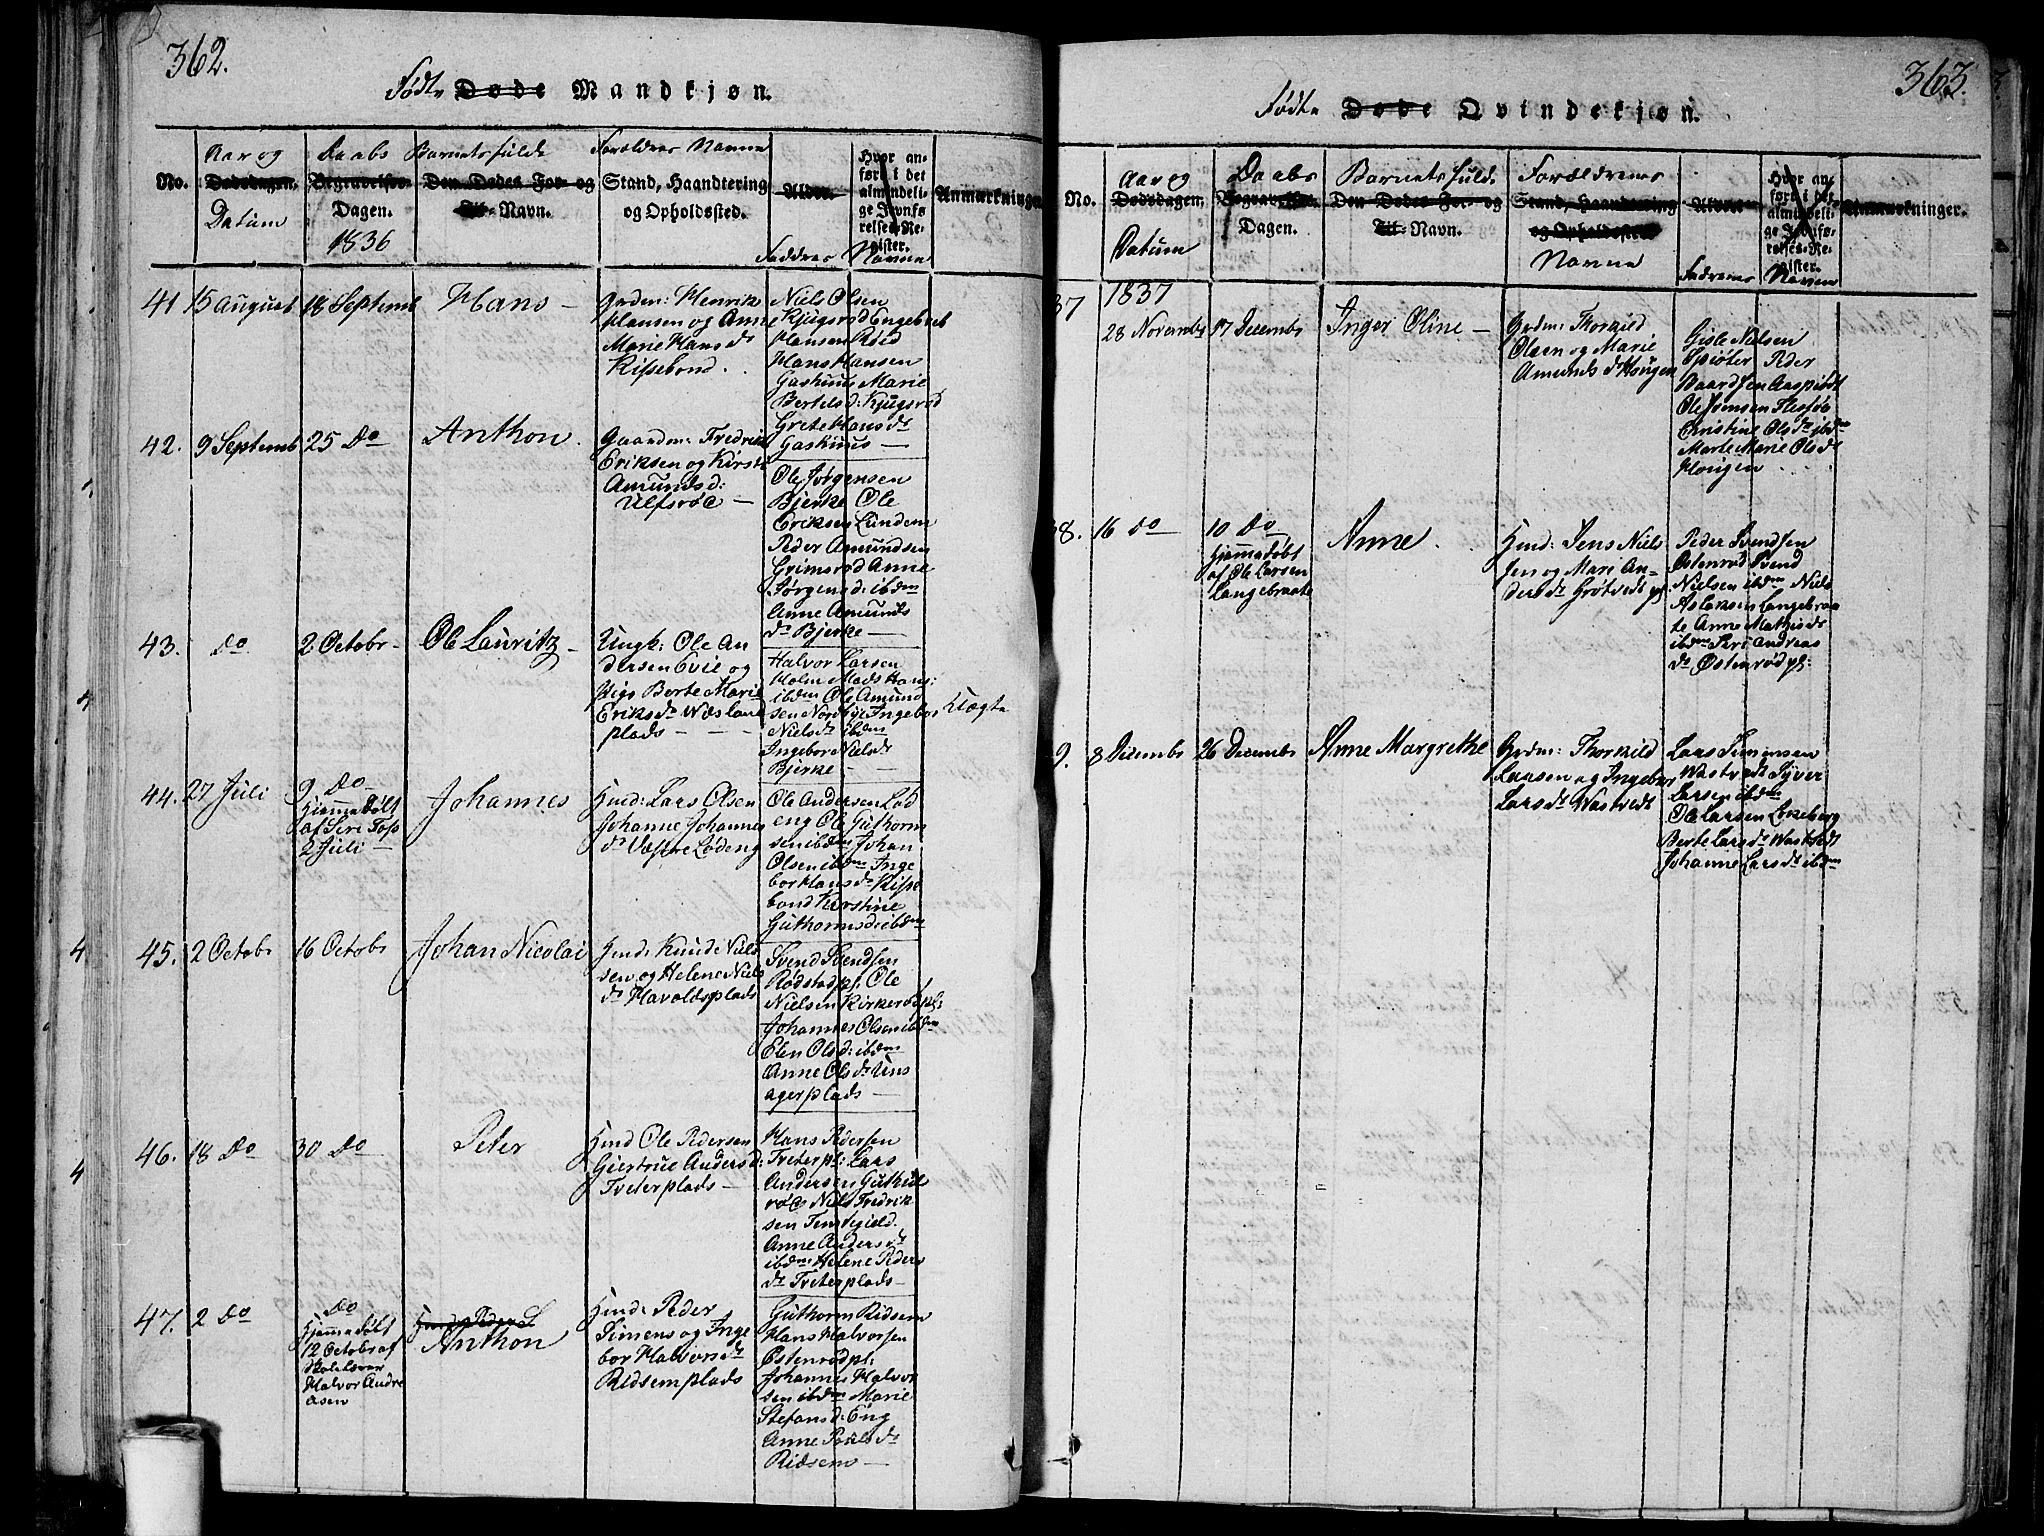 362.
Fødte Døde Mandkjøn.
No.
Aar og
Dødsdagen.
Datum
Daabs
Begravelses-
Dagen.
1836
Barnets fulde
Den Dødes For- og
Til-Navn.
Forældres Navne
Stand, Haandtering
og Opholdssted.
Alder.
Hvor an-
ført i det
almindeli-
ge Jevnfø-
relses-Re-
gister.
Faddres Navne
Anmærkninger
41
15 August
18 Septemb
Hans —
Grdm: Henrik
Hansen og Anne
Marie Hans dr
Kissebond.
Niels Olsen
Kjugsrød Engebret
Hansen Røed
Hans Hansen
Gashuus Marie
Bertelsd: Kjugsrød
Grete Hans dr
Gashuus —
42.
9 Septemb
25 Do
Anthon.
Gaardm: Fredrik
Eriksen og Kirsti
Amundsd:
Ulfsrøe —
Ole Jørgensen
Bjerke Ole
Eriksen Lundem
Peder Amundsen
Grimsrød Anne
Jørgensd: ibdm
Anne Amunds
dr Bjerke —
43.
Do
2 Octobr —
Ole Lauritz —
Ungk: Ole An
dersen Evie og
Pige Berte Marie
Eriks dr Wæsland
plads —
Halvor Larsen
Holm Mads Hans:
ibdm Ole Amund
sen Nordbye Ingebor
Niels dr ibdm
Ingebor Niels dr
Bjerke —
Uægte
44.
27 Juli
9 Do
Hjemmedøbt
af Siri Fos
2 Juli —
Johannes
Hmd: Lars Olsen
Johanne Johannes
dr Vestre Lødeng
Ole Andersen Lød
eng Ole Guthorm
sen ibdm Johan
Olsen ibdm Inge
bor Hans dr Kisse
bond Kirstine
Guthormsd ibdm
45.
2 Octobr
16 Octobr
Johan Nicolai
Hmd: Knud Niel
sen og Helene Niels
dr Haraldsplads
Svend Svendsen
Rødstadpl: Ole
Nielsen Kirkerødpl:
Johannes Olsen ibdm
Elen Olsd: ibdm
Anne Ols dr Uns
agerplads —
46.
18 Do
30 Do
Peter
Hmd Ole Pedersen
Giertrue Andersd:
Tveterplads —
Hans Pedersen
Tveterpl: Lars
Andersen Guthul
røe Niels Fredrik
sen Temtegield.
Anne Anders dr
ibdm Helene Peders
dr Tveterplads —
47.
2 Do
Do
Hjemmedøbt
12 Octobr af
Skolelærer
Halvor Andre
asen
Hmd: Peder S
Anthon
Hmd: Peder
Simens og Inge
bor Halvors dr
Ridsemplads
Guthorm Ridsem
Hans Halvorsen
Østenrødpl:
Johannes Halvor
sen ibdm Marie
Stefansd: Eng
Anne Pouls dr
Ridsem —
4
4
4
363.
Fødte Døde Qvindekjøn.
No.
Aar og
Dødsdagen.
Datum
Daabs
Begravelses-
Dagen.
Barnets fuld.
Den Dødes For- og
Til-Navn.
Forældrenes
Stand, Haandtering
og Opholdssted
Navne
Alder
Hvor an-
ført i det
almindeli-
ge Jevnfø-
relses-Re-
gister.
Fadrenes Navne
Anmærkninger.
37
1837
28 Novembr
17 Decembr
Inger Oline —
Grdm: Thorkild
Olsen og Marie
Amunds dr Hougen
Gisle Nielsen
Spiøter Peder
Baardsen Aaspiødt
Ole Jensen Flesføe
Christine Ols dr ibdm
Marte Marie Ols dr
Hougen
38.
16 Do
10 Do
Hjemmedøbt
af Ole Larsen
Langebraate
Anne.
Hmd: Jens Niel
sen og Mari An
ders dr Grøtvedt pl
Peder Svendsen
Østenrød Svend
Nielsen ibdm Niels
Aslaksen Langebraa
te Anne Mathis dr
ibdm Siri Andreas
dr Østenrødpl:
9.
8 Decembr
26 Decembr
Anne Margrethe
Grdm: Thorkild
Larsen og Ingebor
Lars dr Wastvedt
Lars Simensen
Wastvedt Syver
Larsen ibdm
Ole Larsen Løkeberg
Berte Lars dr Wastvedt
Johanne Lars dr ibdm